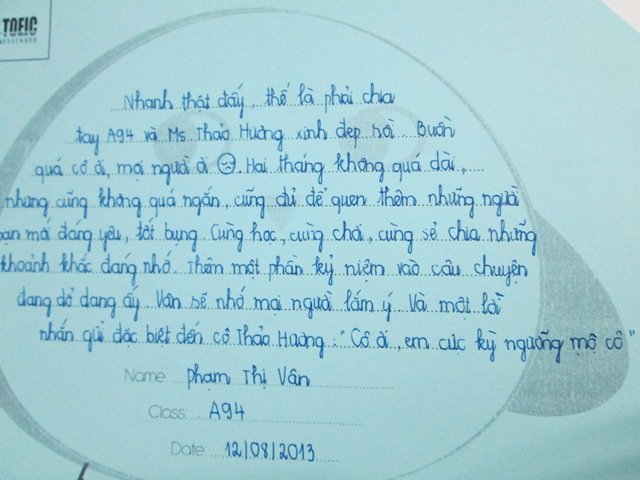 TOEIC
Nhanh thật đấy, thế là phải chia
tay A94 và Ms Thảo Hương xinh đẹp rồi. Buồn
quá cô ơi, mọi người ơi ☹. Hai tháng không quá dài,...
nhưng cũng không quá ngắn, cũng đủ để quen thêm những người
bạn mới đáng yêu, tốt bụng. Cùng học, cùng chơi, cùng sẻ chia những
khoảnh khắc đáng nhớ. Thêm một phần kỷ niệm vào câu chuyện
đang dở dang ấy. Vân sẽ nhớ mọi người lắm ý. Và một lời
nhắn gửi đặc biệt đến cô Thảo Hương: "Cô ơi, em cực kỳ ngưỡng mộ cô"
Name Phạm Thị Vân
Class A94
Date 12/08/2013